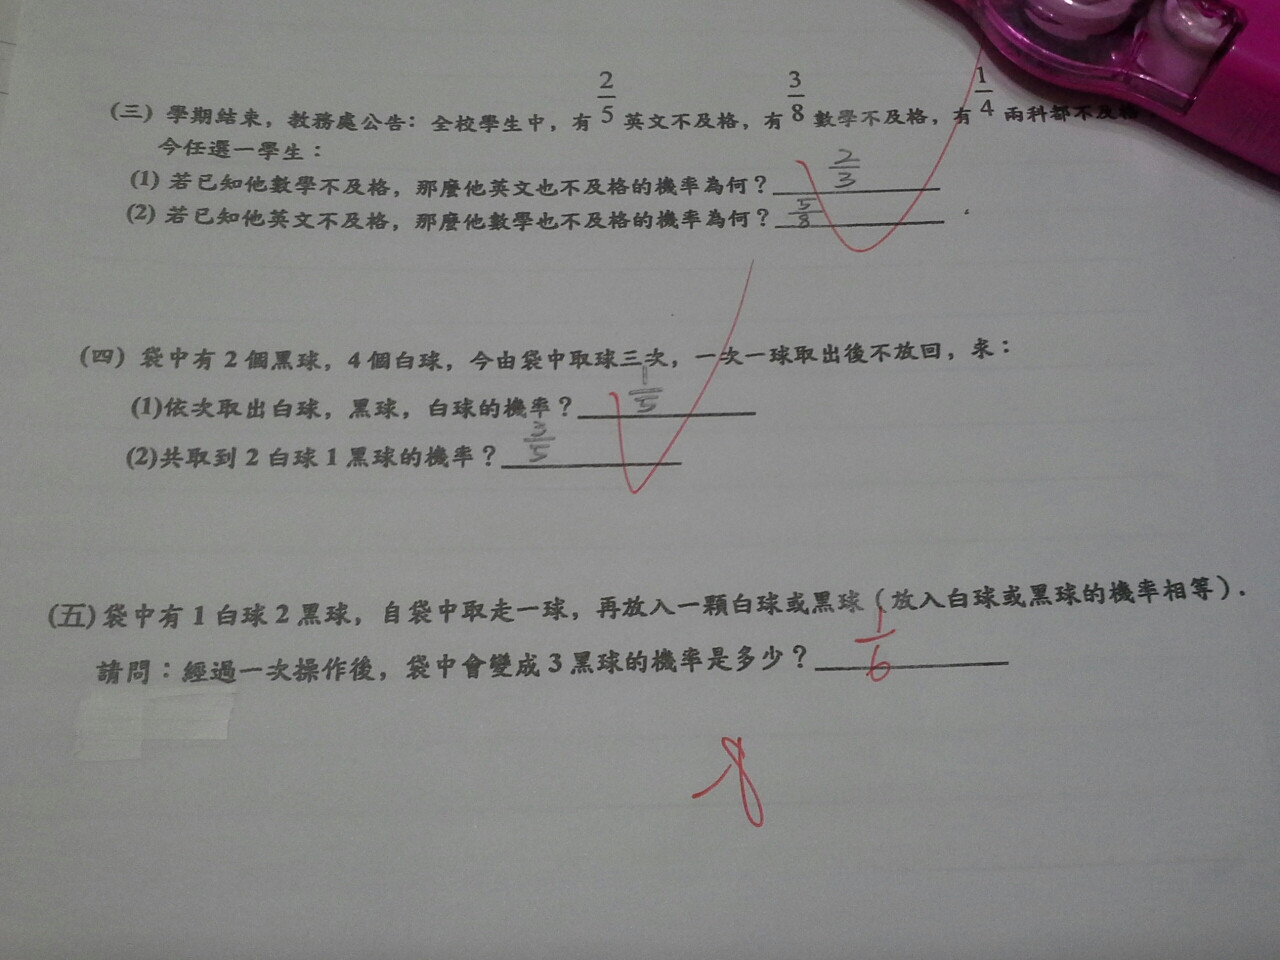 (三) 學期結束，教務處公告：全校學生中，有 2/5 英文不及格，有 3/8 數學不及格，有 1/4 兩科都不及格
今任選一學生：
(1) 若已知他數學不及格，那麼他英文也不及格的機率為何？ 2/3
(2) 若已知他英文不及格，那麼他數學也不及格的機率為何？ 5/8
(四) 袋中有 2 個黑球，4 個白球，今由袋中取球三次，一次一球取出後不放回，求：
(1)依次取出白球，黑球，白球的機率？ 1/5
(2)共取到 2 白球 1 黑球的機率？ 3/5
(五) 袋中有 1 白球 2 黑球，自袋中取走一球，再放入一顆白球或黑球 (放入白球或黑球的機率相等).
請問：經過一次操作後，袋中會變成 3 黑球的機率是多少？ 1/6